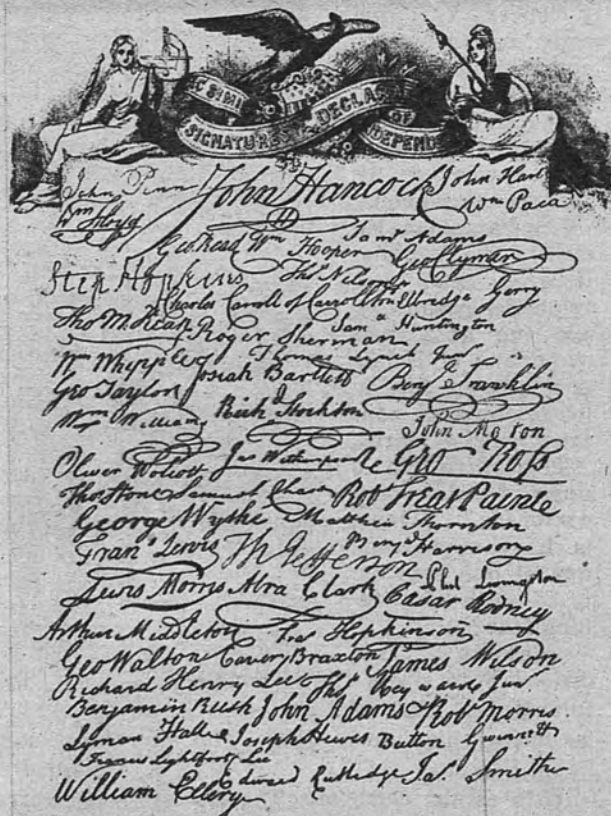 SIMI
SIGNATURES DECLA OF INDEPEND
John Penn John Hancock John Hart
Wm Floyd Wm Paca
Geo Read Wm Hooper Saml Adams
Step Hopkins Thos Nelson jr Geo Clymer
Charles Carroll of Carrollton Elbridge Gerry
Tho M.Kean Roger Sherman Saml Huntington
Wm Whipple Thomas Lynch Junr
Geo Taylor Josiah Bartlett Benj Franklin
Wm Williams Richd Stockton John Morton
Oliver Wolcott Jno Witherspoon Geo Ross
Thos Stone Samuel Chase Robt Treat Paine
George Wythe Matthew Thornton
Frans Lewis Th Jefferson Benj Harrison
Lewis Morris Abra Clark Phil Livingston
Cæsar Rodney
Arthur Middleton Fras Hopkinson
Geo Walton Carter Braxton James Wilson
Richard Henry Lee Thos Heyward Junr
Benjamin Rush John Adams Robt Morris
Lyman Hall Joseph Hewes Button Gwinnett
Francis Lightfoot Lee
William Ellery Edward Rutledge Jas Smith